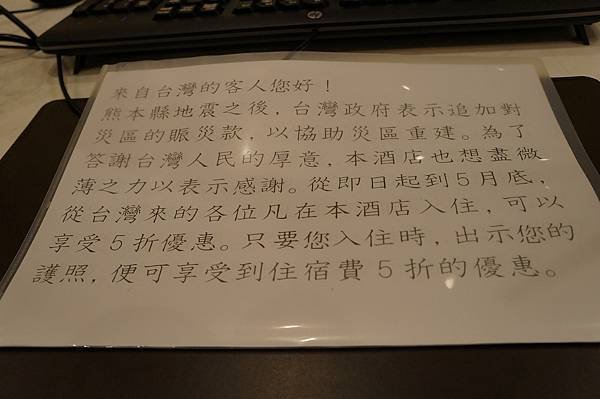 來自台灣的客人您好！
熊本縣地震之後，台灣政府表示追加對
災區的賑災款，以協助災區重建。為了
答謝台灣人民的厚意，本酒店也想盡微
薄之力以表示感謝。從即日起到5月底，
從台灣來的各位凡在本酒店入住，可以
享受5折優惠。只要您入住時，出示您的
護照，便可享受到住宿費5折的優惠。